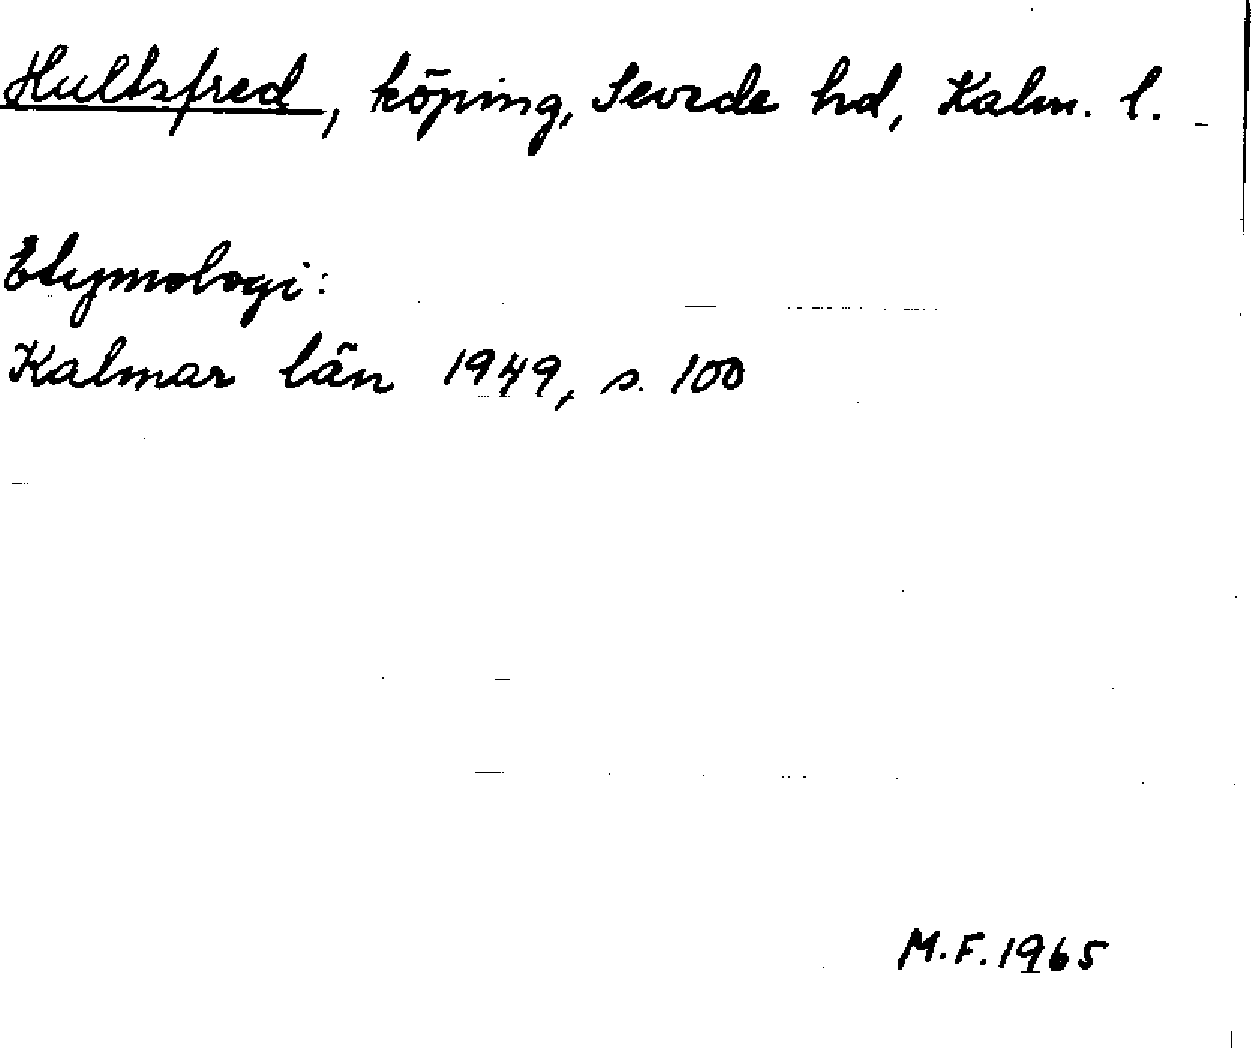 Hultsfred, köping, Sevede hd, Kalm. l.
Etymologi:
Kalmar län 1949, s. 100
M.F. 1965